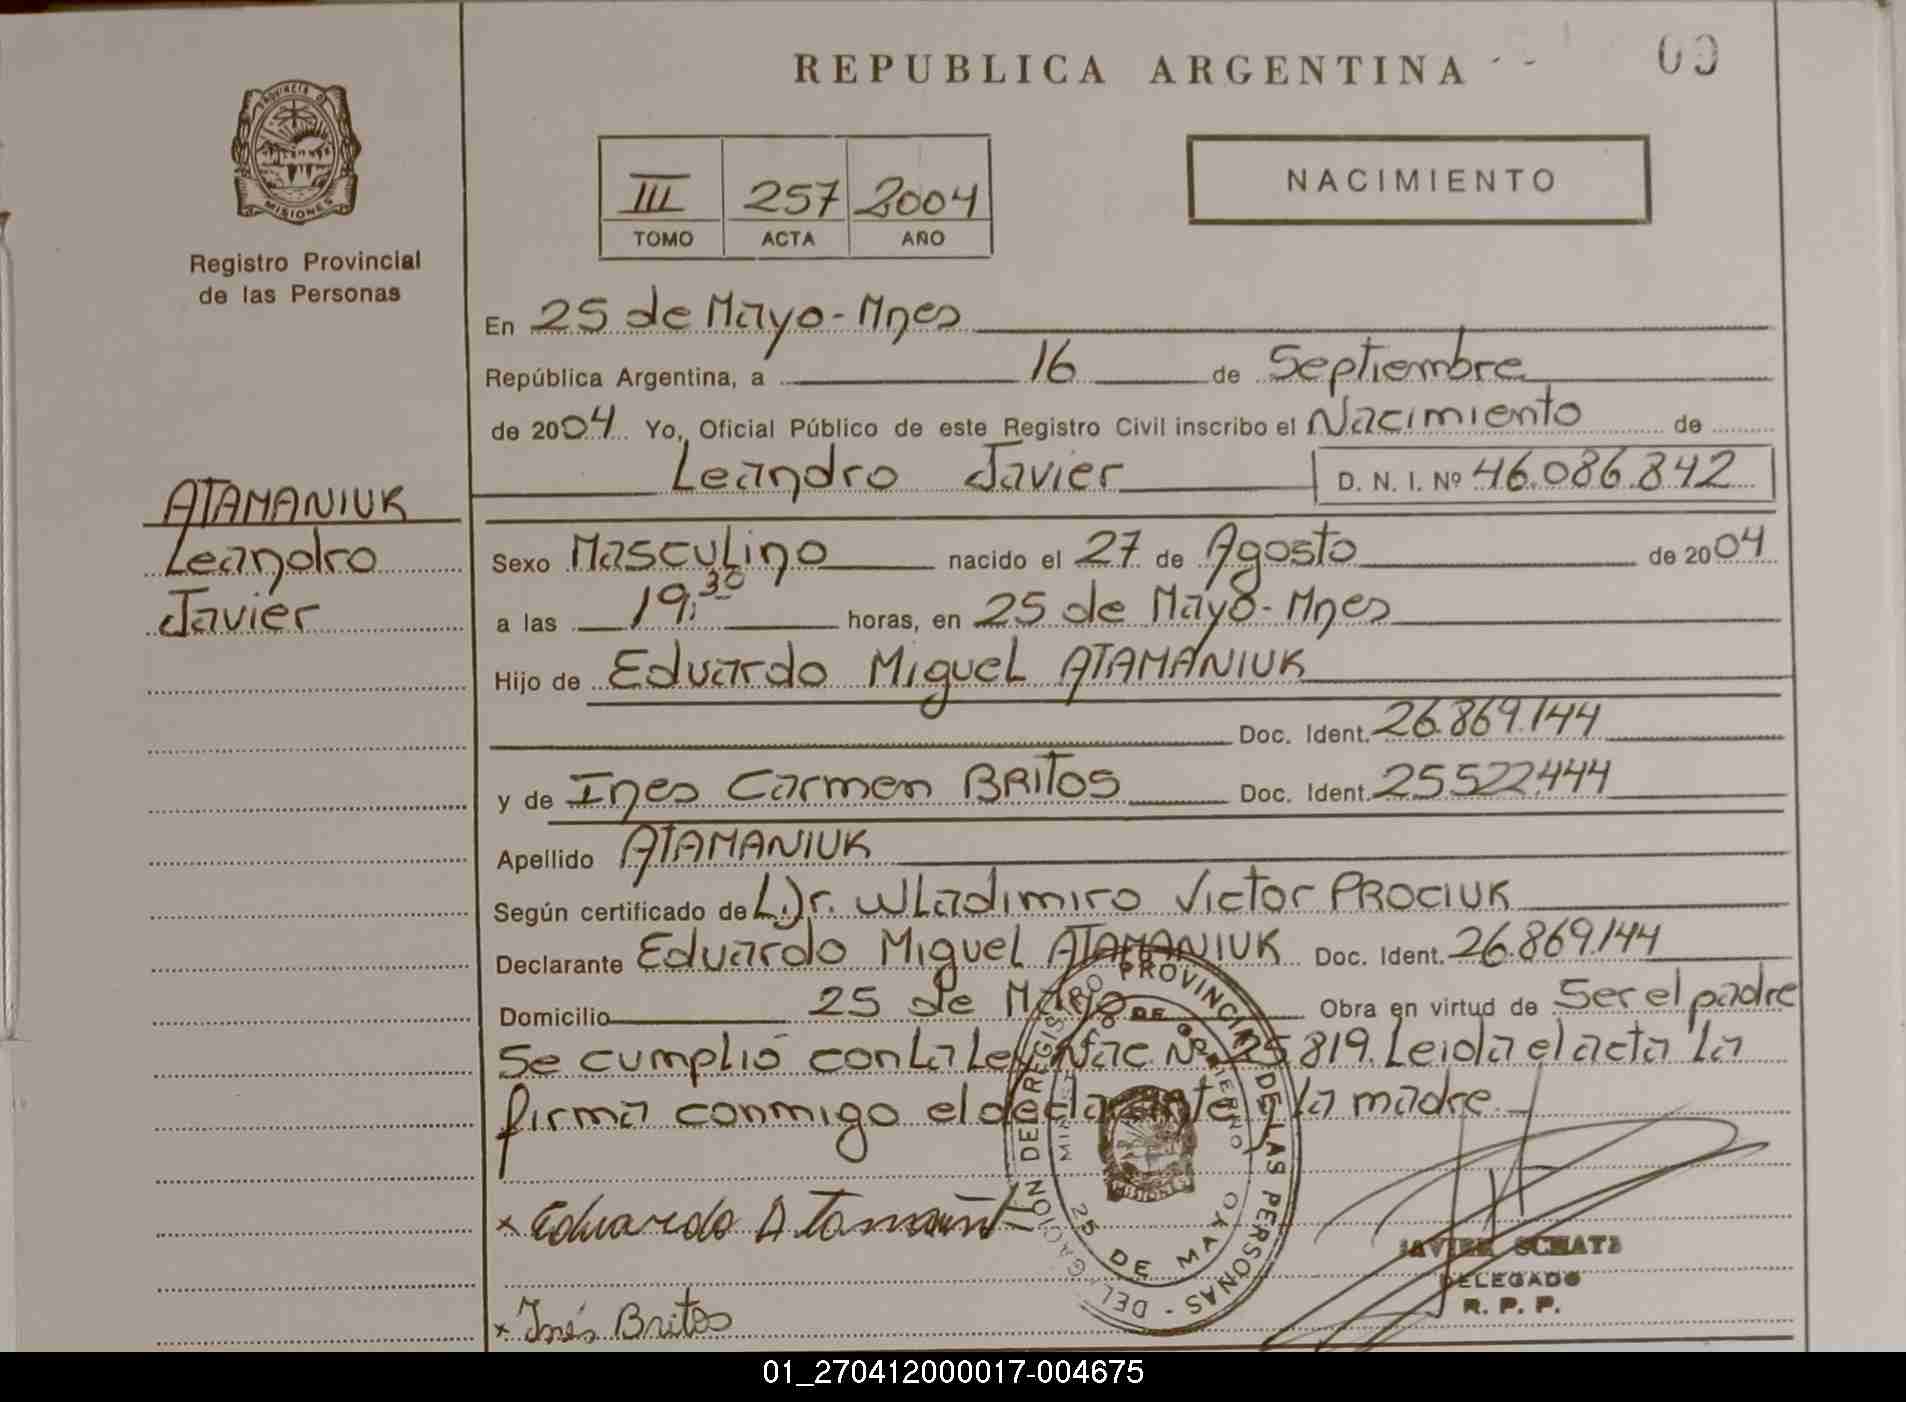 REPUBLICA ARGENTINA
PROVINCIA DE
MISIONES
Registro Provincial
de las Personas
III 257 2004
TOMO ACTA AÑO
NACIMIENTO
En 25 de Mayo - Mnes
República Argentina, a 16 de Septiembre
de 2004 Yo, Oficial Público de este Registro Civil inscribo el Nacimiento de
Leandro Javier D. N. I. Nº 46.086.842
ATAMANIUK
Leandro
Javier
Sexo Masculino nacido el 27 de Agosto de 2004
a las 19:30 horas, en 25 de Mayo - Mnes
Hijo de Eduardo Miguel ATAMANIUK
Doc. Ident. 26.869.144
y de Ines Carmen BRITOS Doc. Ident. 25.522.444
Apellido ATAMANIUK
Según certificado de L Dr. Wladimiro Victor PROCIUK
Declarante Eduardo Miguel ATAMANIUK Doc. Ident. 26.869.144
Domicilio 25 de Mayo Obra en virtud de Ser el padre
Se cumplió con la Ley Nac. Nº 25819. Leida el acta la
firma conmigo el declarante y la madre
DEL REGISTRO PROVINCIAL DE LAS PERSONAS
25 DE MAYO
MISIONES
x Eduardo Atamaniuk
JAVIER SCHATZ
DELEGADO
R. P. P.
x Inés Britos
01_270412000017-004675